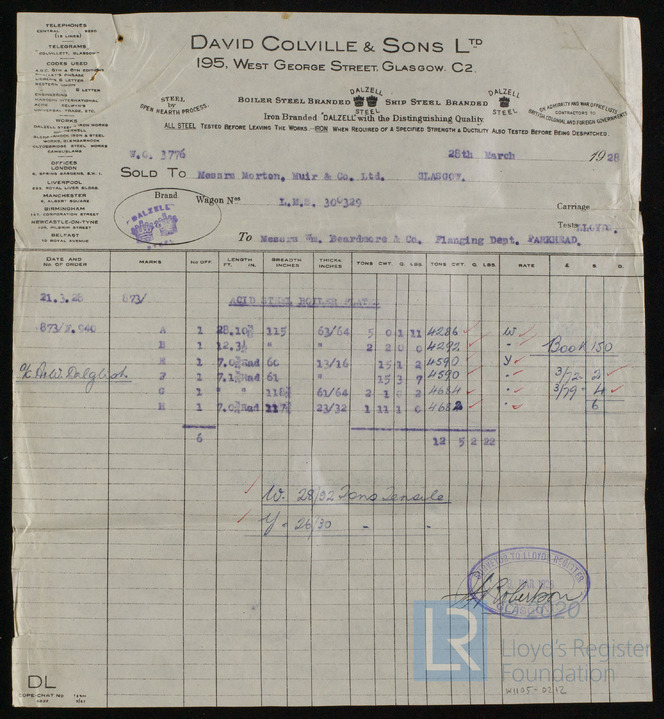 TELEPHONES
CENTRAL 9520
(15 LINES)
TELEGRAMS
"COLVILLETT, GLASGOW"
CODES USED
MARCONI INTERNATIONAL
UNIVERSAL TRADE, ETC.
WORKS
DALZELL STEEL & IRON WORKS
MOTHERWELL
GLENGARNOCK IRON & STEEL
WORKS, GLENGARNOCK
CLYDEBRIDGE STEEL WORKS
CAMBUSLANG
OFFICES
LONDON
LIVERPOOL
233, ROYAL LIVER BLDGS.
MANCHESTER
6, ALBERT SQUARE
BIRMINGHAM
157, CORPORATION STREET
NEWCASTLE-ON-TYNE
PILGRIM STREET
BELFAST
13 ROYAL AVENUE
DAVID COLVILLE & SONS LTD
195, WEST GEORGE STREET, GLASGOW. C2.
STEEL by OPEN HEARTH PROCESS.
BOILER STEEL BRANDED DALZELL STEEL SHIP STEEL BRANDED DALZELL STEEL
Iron Branded "DALZELL" with the Distinguishing Quality
ON ADMIRALTY AND WAR OFFICE LISTS
CONTRACTORS TO
BRITISH COLONIAL AND FOREIGN GOVERNMENTS
ALL STEEL TESTED BEFORE LEAVING THE WORKS.—IRON WHEN REQUIRED OF A SPECIFIED STRENGTH & DUCTILITY ALSO TESTED BEFORE BEING DESPATCHED.
W.O. 3776 28th March 1928
SOLD TO Messrs Morton, Muir & Co. Ltd. GLASGOW.
Brand Wagon Nos L.M.S. 306329 Carriage
DALZELL STEEL
Tests LLOYDS.
To Messrs Wm. Beardmore & Co. Flanging Dept. PARKHEAD.
DATE AND No. OF ORDER MARKS No OFF. LENGTH FT. IN. BREADTH INCHES THICKS INCHES TONS CWT. Q. LBS. TONS CWT. Q. LBS. RATE £ S. D.
21.3.28 873/ ACID STEEL BOILER PLATE
873/Y.940 A 1 28.10¾ 115 63/64 5 0 1 11 4286 W
B 1 12.3½ " " 2 2 0 0 4292 " Book 150
E 1 Rad 60 13/16 15 1 2 4590 Y
F 1 Rad 61 " 15 3 7 4590 " 3/72 - 2
G 1 " " 61/64 2 1 4684 " 3/79 - 4
H 1 Rad 23/32 1 11 1 0 4682 " 6
6 12 5 2 22
W. 28/32 Tons Tensile
Y - 26/30 - -
SURVEYOR TO LLOYDS REGISTER
MAR 1928
Robertson
GLASGOW
LR
2020
Lloyd's Register
Foundation
W1105-0212
DL
COPE-CHAT No